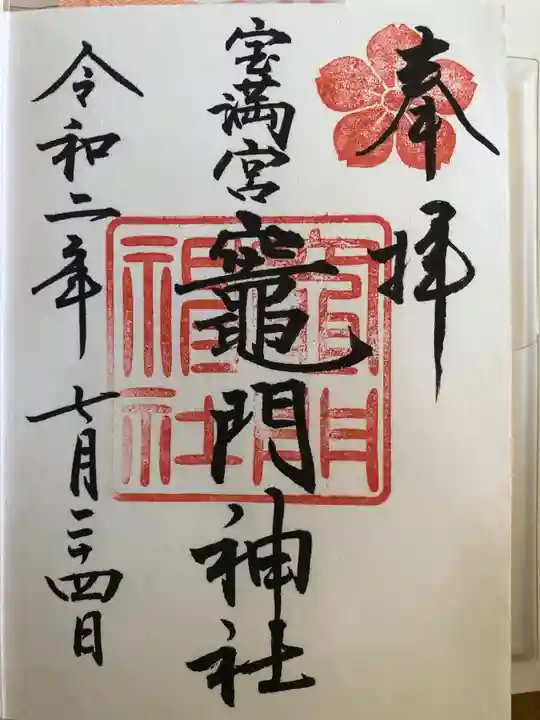 奉拝
宝満宮
竈門神社
竈門神社
令和二年 七月二十四日